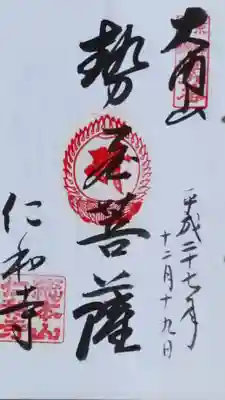 大内山
平成二十七年
十二月十九日
勢至菩薩
仁和寺